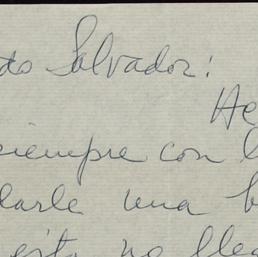 do Salvador:
He
siempre con l
darle una b
esta no lleg